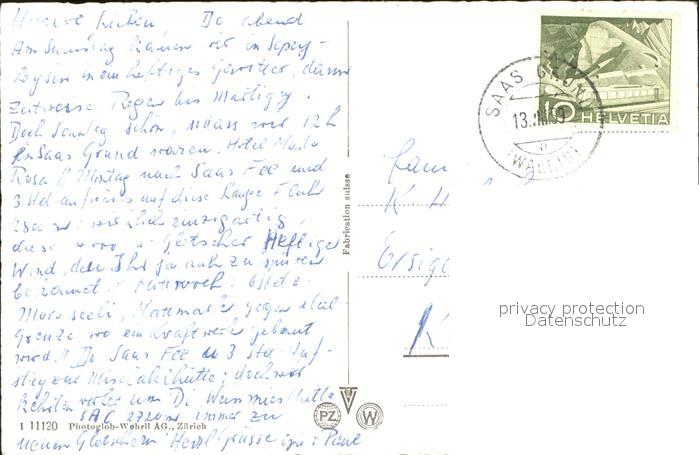 Unsere Lieben Do abend
Am Samstag kamen wir in Sepey-
Leysin in ein heftiges Gewitter, dann
zeitweise Regen bis Martigny.
Doch Sonntag schön, sodass wir 12h
in Saas Grund waren. Hotel Monte
Rosa !! Montag nach Saas Fee und
3 Std aufwärts auf diese Lange Fluh
wirklich einzigartig
diese 4000 u. Gletscher Heftiger
Wind, den Ihr ja auch zu spüren
bekamet. / Mittwoch
Mattmark gegen Ital
Grenze wo ein Kraftwerk gebaut
wird.!! Do Saas Fee u 3 Std. Auf-
stieg zur Mischabelhütte; doch wir
kehrten vorher um Di Weissmieshütte
SAC 2720m immer zu
neuen Gletschern Herzl Grüsse
Fabrication suisse
1 11120 Photoglob-Wehrli AG., Zürich
PZ W
10 HELVETIA
SAAS GRUND
13.
(WALLIS)
Fam
K. H
Ersig
K
privacy protection
Datenschutz